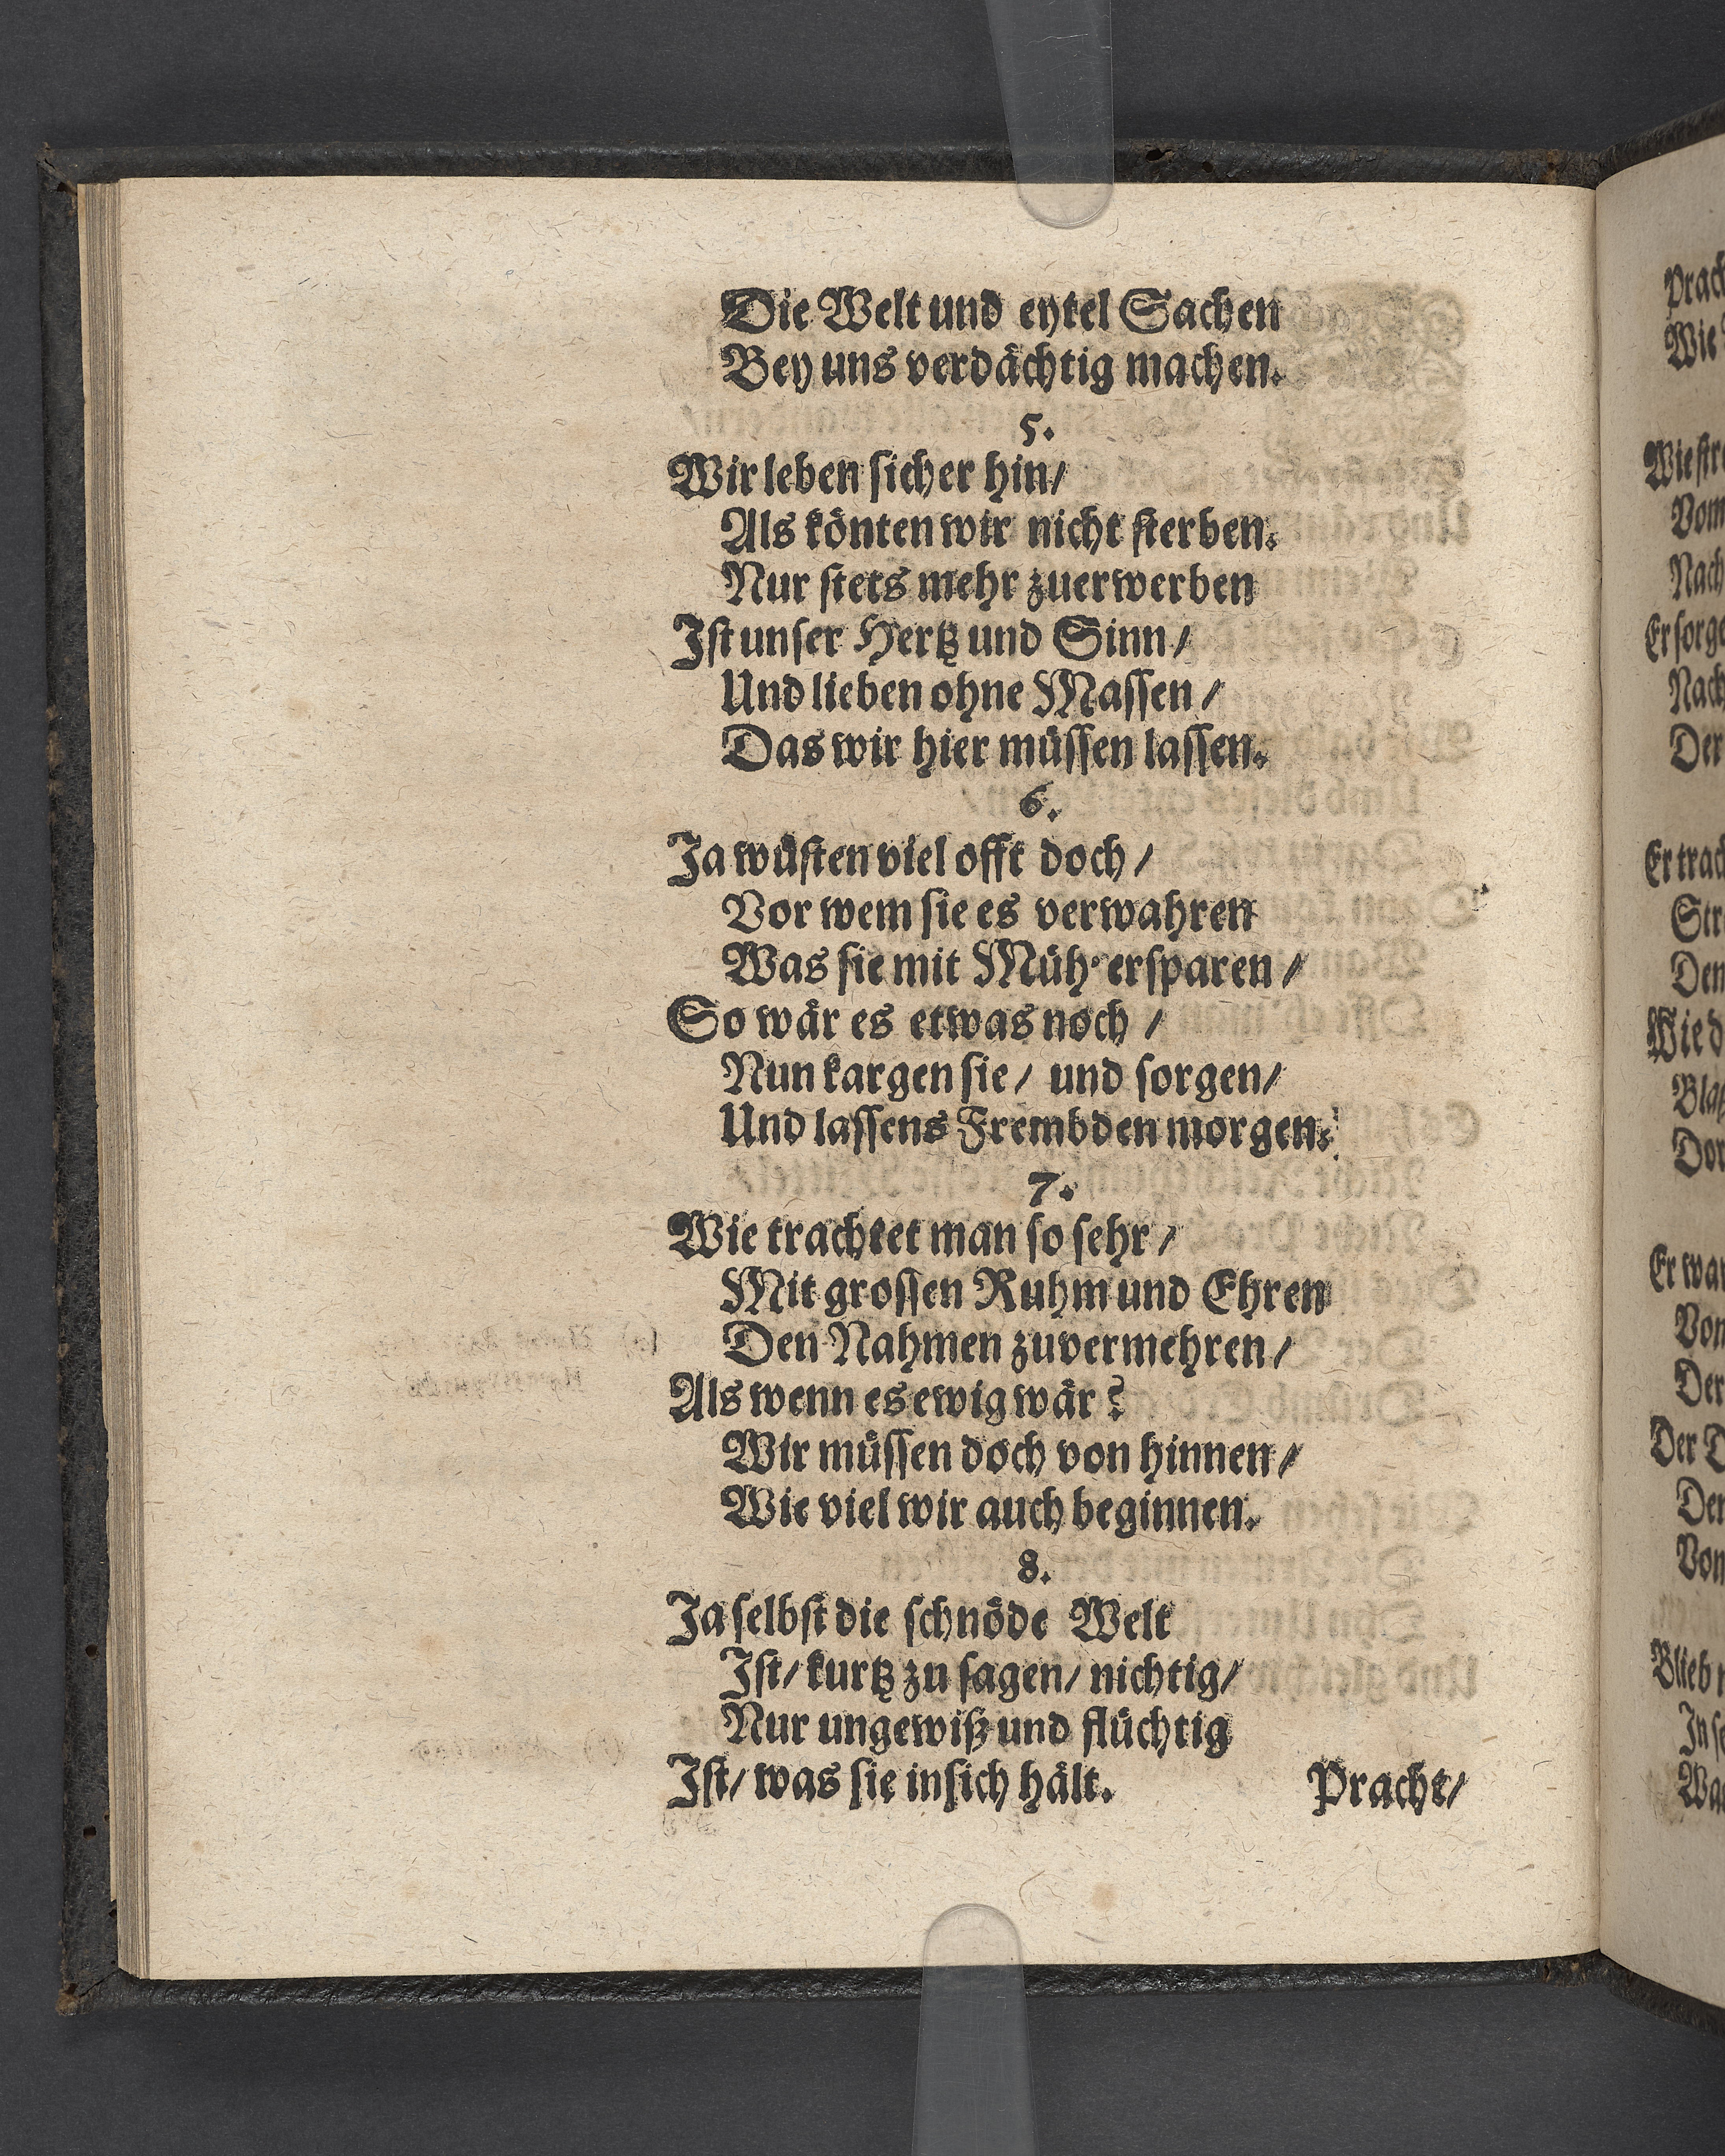 Die Welt und eytel Sachen
Bey uns verdächtig machen.
5.
Wir leben sicher hin/
Als könten wir nicht sterben.
Nur stets mehr zuerwerben
Ist unser Hertz und Sinn/
Und lieben ohne Massen/
Das wir hier müssen lassen.
6.
Ja wüsten viel offt doch/
Vor wem sie es verwahren
Was sie mit Müh' ersparen/
So wär es etwas noch/
Nun kargen sie/ und sorgen/
Und lassens Frembden morgen.
7.
Wie trachtet man so sehr/
Mit grossen Ruhm und Ehren
Den Nahmen zuvermehren/
Als wenn es ewig wär?
Wir müssen doch von hinnen/
Wie viel wir auch beginnen.
8.
Ja selbst die schnöde Welt
Ist/ kurtz zu sagen/ nichtig/
Nur ungewiß und flüchtig
Ist/ was sie insich hält.
Pracht/
Wie
Vom
Nach
Er sorge
Nach
Der
Er trach
Den
Wie d
Er war
Von
Der
Der
Den
Von
Blieb